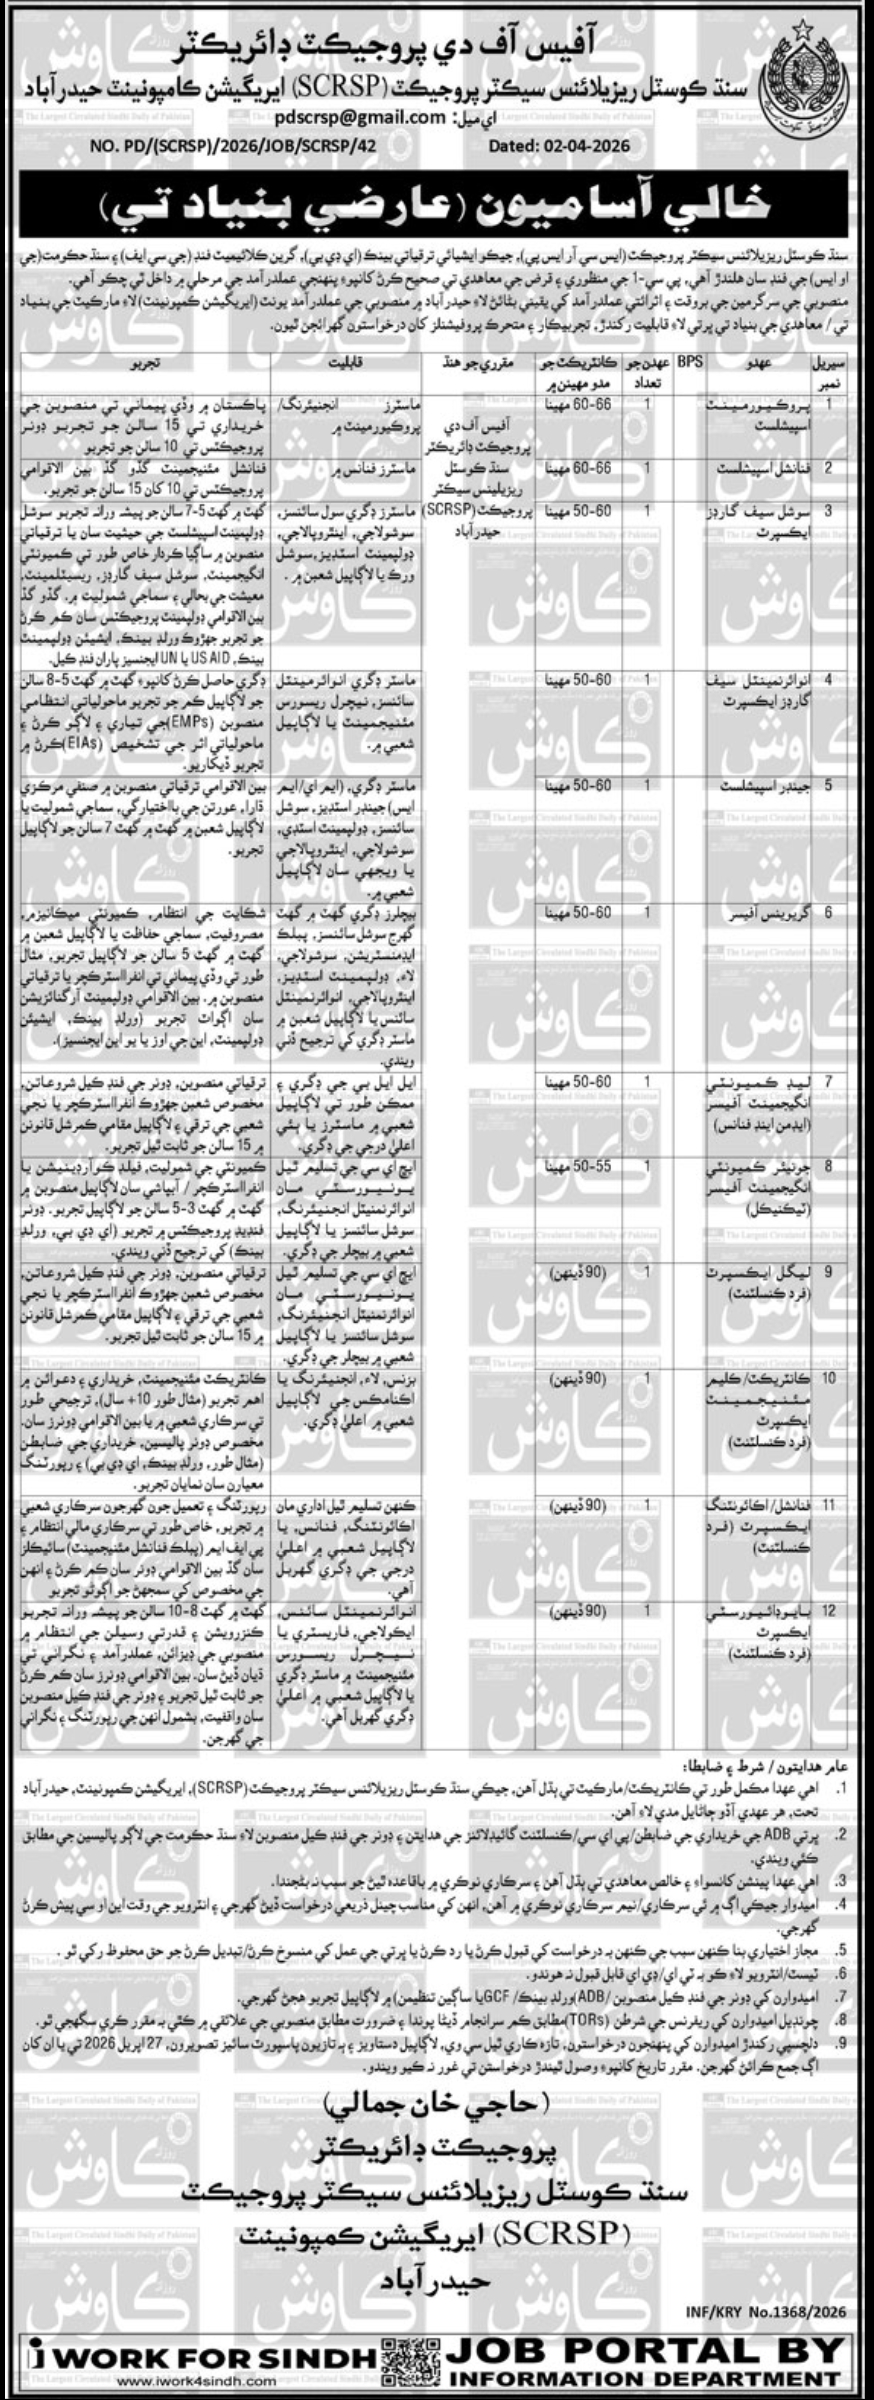 آفيس آف دي پروجيڪٽ ڊائريڪٽر
سنڌ ڪوسٽل ريزيلائنس سيڪٽر پروجيڪٽ (SCRSP) ايريگيشن ڪامپونينٽ حيدرآباد
اي ميل: pdscrsp@gmail.com
NO. PD/(SCRSP)/2026/JOB/SCRSP/42 Dated: 02-04-2026
خالي آساميون (عارضي بنياد تي)
سنڌ ڪوسٽل ريزيلائنس سيڪٽر پروجيڪٽ (ايس سي آر ايس پي)، جيڪو ايشيائي ترقياتي بينڪ (اي ڊي بي)، گرين ڪلائيميٽ فنڊ (جي سي ايف) ۽ سنڌ حڪومت (جي
او ايس) جي فنڊ سان هلندڙ آهي، پي سي-1 جي منظوري ۽ قرض جي معاهدي تي صحيح ڪرڻ کانپوءِ پنهنجي عملدرآمد جي مرحلي ۾ داخل ٿي چڪو آهي.
منصوبي جي سرگرمين جي بروقت ۽ اثرائتي عملدرآمد کي يقيني بڻائڻ لاءِ حيدرآباد ۾ منصوبي جي عملدرآمد يونٽ (ايريگيشن ڪمپونينٽ) لاءِ مارڪيٽ جي بنياد
تي / معاهدي جي بنياد تي ڀرتي لاءِ قابليت رکندڙ، تجربيڪار ۽ متحرڪ پروفيشنلز کان درخواستون گهرائجن ٿيون.
سيريل نمبر | عهدو | BPS | عهدن جو تعداد | ڪانٽريڪٽ جو مدو مهينن ۾ | مقرري جو هنڌ | قابليت | تجربو
آفيس آف دي
پروجيڪٽ ڊائريڪٽر
سنڌ ڪوسٽل
ريزيلينس سيڪٽر
پروجيڪٽ (SCRSP)
حيدرآباد
1 | پروڪيورمينٽ اسپيشلسٽ | 1 | 60-66 مهينا | ماسٽرز انجنيئرنگ/ پروڪيورمينٽ ۾ | پاڪستان ۾ وڏي پيماني تي منصوبن جي
خريداري تي 15 سالن جو تجربو ڊونر
پروجيڪٽس تي 10 سالن جو تجربو
2 | فنانشل اسپيشلسٽ | 1 | 60-66 مهينا | ماسٽرز فنانس ۾ | فنانشل مئنيجمينٽ گڏوگڏ بين الاقوامي
پروجيڪٽس تي 10 کان 15 سالن جو تجربو.
3 | سوشل سيف گارڊز ايڪسپرٽ | 1 | 50-60 مهينا | ماسٽرز ڊگري سول سائنسز،
سوشولاجي، اينٿروپالاجي،
ڊولپمينٽ اسٽڊيز، سوشل
ورڪ يا لاڳاپيل شعبن ۾.
گهٽ ۾ گهٽ 5-7 سالن جو پيشه ورانه تجربو سوشل
ڊولپمينٽ اسپيشلسٽ جي حيثيت سان يا ترقياتي
منصوبن ۾ ساڳيا ڪردار خاص طور تي ڪميونٽي
انگيجمينٽ، سوشل سيف گارڊز، ريسيٽلمينٽ،
معيشت جي بحالي ۽ سماجي شموليت ۾. گڏوگڏ
بين الاقوامي ڊولپمينٽ پروجيڪٽس سان ڪم ڪرڻ
جو تجربو جهڙوڪ ورلڊ بينڪ، ايشيئن ڊولپمينٽ
بينڪ، US AID يا UN ايجنسيز پاران فنڊ ڪيل.
4 | انوائرنمينٽل سيف گارڊز ايڪسپرٽ | 1 | 50-60 مهينا | ماسٽر ڊگري انوائرمينٽل
سائنسز، نيچرل ريسورس
مئنيجمينٽ يا لاڳاپيل
شعبي ۾.
ڊگري حاصل ڪرڻ کانپوءِ گهٽ ۾ گهٽ 5-8 سالن
جو لاڳاپيل ڪم جو تجربو ماحولياتي انتظامي
منصوبن (EMPs) جي تياري ۽ لاڳو ڪرڻ ۽
ماحولياتي اثر جي تشخيص (EIAs) ڪرڻ ۾
تجربو ڏيکاريو.
5 | جينڊر اسپيشلسٽ | 1 | 50-60 مهينا | ماسٽر ڊگري، (ايم اي/ايم
ايس) جينڊر اسٽڊيز، سوشل
سائنسز، ڊولپمينٽ اسٽڊي،
سوشولاجي، اينٿروپالاجي
يا ويجهي سان لاڳاپيل
شعبي ۾.
بين الاقوامي ترقياتي منصوبن ۾ صنفي مرڪزي
ڌارا، عورتن جي بااختيارگي، سماجي شموليت يا
لاڳاپيل شعبن ۾ گهٽ ۾ گهٽ 7 سالن جو لاڳاپيل
تجربو.
6 | گريوينس آفيسر | 1 | 50-60 مهينا | بيچلرز ڊگري گهٽ ۾ گهٽ
گهرج سوشل سائنسز، پبلڪ
ايڊمنسٽريشن، سوشولاجي،
لاءِ، ڊولپمينٽ اسٽڊيز،
اينٿروپالاجي، انوائرنمينٽل
سائنس يا لاڳاپيل شعبن ۾
ماسٽر ڊگري کي ترجيح ڏني
ويندي.
شڪايت جي انتظام، ڪميونٽي ميڪانيزم،
مصروفيت، سماجي حفاظت يا لاڳاپيل شعبن ۾
گهٽ ۾ گهٽ 5 سالن جو لاڳاپيل تجربو، مثال
طور تي وڏي پيماني تي انفرااسٽرڪچر يا ترقياتي
منصوبن ۾. بين الاقوامي ڊولپمينٽ آرگنائزيشن
سان اڳواٽ تجربو (ورلڊ بينڪ، ايشيئن
ڊولپمينٽ، اين جي اوز يا يو اين ايجنسيز).
7 | ليڊ ڪميونٽي انگيجمينٽ آفيسر (ايڊمن اينڊ فنانس) | 1 | 50-60 مهينا | ايل ايل بي جي ڊگري ۽
ممڪن طور تي لاڳاپيل
شعبي ۾ ماسٽرز يا ٻئي
اعليٰ درجي جي ڊگري.
ترقياتي منصوبن، ڊونر جي فنڊ ڪيل شروعاتن،
مخصوص شعبن جهڙوڪ انفرااسٽرڪچر يا نجي
شعبي جي ترقي ۽ لاڳاپيل مقامي ڪمرشل قانونن
۾ 15 سالن جو ثابت ٿيل تجربو.
8 | جونيئر ڪميونٽي انگيجمينٽ آفيسر (ٽيڪنيڪل) | 1 | 50-55 مهينا | ايڇ اي سي جي تسليم ٿيل
يونيورسٽي مان
انوائرنمنيٽل انجنيئرنگ،
سوشل سائنسز يا لاڳاپيل
شعبي ۾ بيچلر جي ڊگري.
ڪميونٽي جي شموليت، فيلڊ ڪوآرڊينيشن يا
انفرااسٽرڪچر / آبپاشي سان لاڳاپيل منصوبن ۾
گهٽ ۾ گهٽ 3-5 سالن جو لاڳاپيل تجربو. ڊونر
فنڊيڊ پروجيڪٽس ۾ تجربو (اي ڊي بي، ورلڊ
بينڪ) کي ترجيح ڏني ويندي.
9 | ليگل ايڪسپرٽ (فرد ڪنسلٽنٽ) | 1 | (90 ڏينهن) | ايڇ اي سي جي تسليم ٿيل
يونيورسٽي مان
انوائرنمنيٽل انجنيئرنگ،
سوشل سائنسز يا لاڳاپيل
شعبي ۾ بيچلر جي ڊگري.
ترقياتي منصوبن، ڊونر جي فنڊ ڪيل شروعاتن،
مخصوص شعبن جهڙوڪ انفرااسٽرڪچر يا نجي
شعبي جي ترقي ۽ لاڳاپيل مقامي ڪمرشل قانونن
۾ 15 سالن جو ثابت ٿيل تجربو.
10 | ڪانٽريڪٽ/ڪليم مئنيجمينٽ ايڪسپرٽ (فرد ڪنسلٽنٽ) | 1 | (90 ڏينهن) | بزنس، لاء، انجنيئرنگ يا
اڪنامڪس جي لاڳاپيل
شعبي ۾ اعليٰ ڊگري.
ڪانٽريڪٽ مئنيجمينٽ، خريداري ۽ دعوائن ۾
اهم تجربو (مثال طور 10+ سال)، ترجيحي طور
تي سرڪاري شعبي ۾ يا بين الاقوامي ڊونرز سان.
مخصوص ڊونر پاليسين، خريداري جي ضابطن
(مثال طور، ورلڊ بينڪ، اي ڊي بي) ۽ رپورٽنگ
معيارن سان نمايان تجربو.
11 | فنانشل/اڪائونٽنگ ايڪسپرٽ (فرد ڪنسلٽنٽ) | 1 | (90 ڏينهن) | ڪنهن تسليم ٿيل اداري مان
اڪائونٽنگ، فنانس، يا
لاڳاپيل شعبي ۾ اعليٰ
درجي جي ڊگري گهربل
آهي.
رپورٽنگ ۽ تعميل جون گهرجون سرڪاري شعبي
۾ تجربو، خاص طور تي سرڪاري مالي انتظام ۽
پي ايف ايم (پبلڪ فنانشل مئنيجمينٽ) سائيڪلز
سان گڏ بين الاقوامي ڊونر سان ڪم ڪرڻ ۽ انهن
جي مخصوص کي سمجهڻ جو اڳوڻو تجربو
12 | بايوڊائيورسٽي ايڪسپرٽ (فرد ڪنسلٽنٽ) | 1 | (90 ڏينهن) | انوائرنمينٽل سائنس،
ايڪولاجي، فاريسٽري يا
نيچرل ريسورس
مئنيجمينٽ ۾ ماسٽر ڊگري
يا لاڳاپيل شعبي ۾ اعليٰ
ڊگري گهربل آهي.
گهٽ ۾ گهٽ 8-10 سالن جو پيشه ورانه تجربو
ڪنزرويشن ۽ قدرتي وسيلن جي انتظام ۾
منصوبي جي ڊيزائن، عملدرآمد ۽ نگراني تي
ڌيان ڏيڻ سان. بين الاقوامي ڊونرز سان ڪم ڪرڻ
جو ثابت ٿيل تجربو ۽ ڊونر جي فنڊ ڪيل منصوبن
سان واقفيت، بشمول انهن جي رپورٽنگ ۽ نگراني
جي گهرجن.
عام هدايتون / شرط ۽ ضابطا:
1. اهي عهدا مڪمل طور تي ڪانٽريڪٽ/مارڪيٽ تي ٻڌل آهن، جيڪي سنڌ ڪوسٽل ريزيلائنس سيڪٽر پروجيڪٽ (SCRSP)، ايريگيشن ڪمپونينٽ، حيدرآباد
تحت، هر عهدي آڏو ڄاڻايل مدي لاءِ آهن.
2. ڀرتي ADB جي خريداري جي ضابطن/پي اي سي/ڪنسلٽنٽ گائيڊلائنز جي هدايتن ۽ ڊونر جي فنڊ ڪيل منصوبن لاءِ سنڌ حڪومت جي لاڳو پاليسين جي مطابق
ڪئي ويندي.
3. اهي عهدا پينشن کانسواءِ ۽ خالص معاهدي تي ٻڌل آهن ۽ سرڪاري نوڪري ۾ باقاعده ٿيڻ جو سبب نه بڻجندا.
4. اميدوار جيڪي اڳ ۾ ئي سرڪاري/نيم سرڪاري نوڪري ۾ آهن، انهن کي مناسب چينل ذريعي درخواست ڏيڻ گهرجي ۽ انٽرويو جي وقت اين او سي پيش ڪرڻ
گهرجي.
5. مجاز اختياري بنا ڪنهن سبب جي ڪنهن به درخواست کي قبول ڪرڻ يا رد ڪرڻ يا ڀرتي جي عمل کي منسوخ ڪرڻ/تبديل ڪرڻ جو حق محفوظ رکي ٿو.
6. ٽيسٽ/انٽرويو لاءِ ڪو به ٽي اي/ڊي اي قابل قبول نه هوندو.
7. اميدوارن کي ڊونر جي فنڊ ڪيل منصوبن (ADB/ورلڊ بينڪ/GCF يا ساڳين تنظيمن) ۾ لاڳاپيل تجربو هجڻ گهرجي.
8. چونڊيل اميدوارن کي ريفرنس جي شرطن (TORs) مطابق ڪم سرانجام ڏيڻا پوندا ۽ ضرورت مطابق منصوبي جي علائقي ۾ ڪٿي به مقرر ڪري سگهجي ٿو.
9. دلچسپي رکندڙ اميدوارن کي پنهنجون درخواستون، تازه ڪاري ٿيل سي وي، لاڳاپيل دستاويز ۽ ٻه تازيون پاسپورٽ سائيز تصويرون، 27 اپريل 2026 تي يا ان کان
اڳ جمع ڪرائڻ گهرجن. مقرر تاريخ کانپوءِ وصول ٿيندڙ درخواستن تي غور نه ڪيو ويندو.
(حاجي خان جمالي)
پروجيڪٽ ڊائريڪٽر
سنڌ ڪوسٽل ريزيلائنس سيڪٽر پروجيڪٽ
(SCRSP) ايريگيشن ڪمپونينٽ
حيدرآباد
INF/KRY No.1368/2026
i WORK FOR SINDH JOB PORTAL BY
www.iwork4sindh.com INFORMATION DEPARTMENT